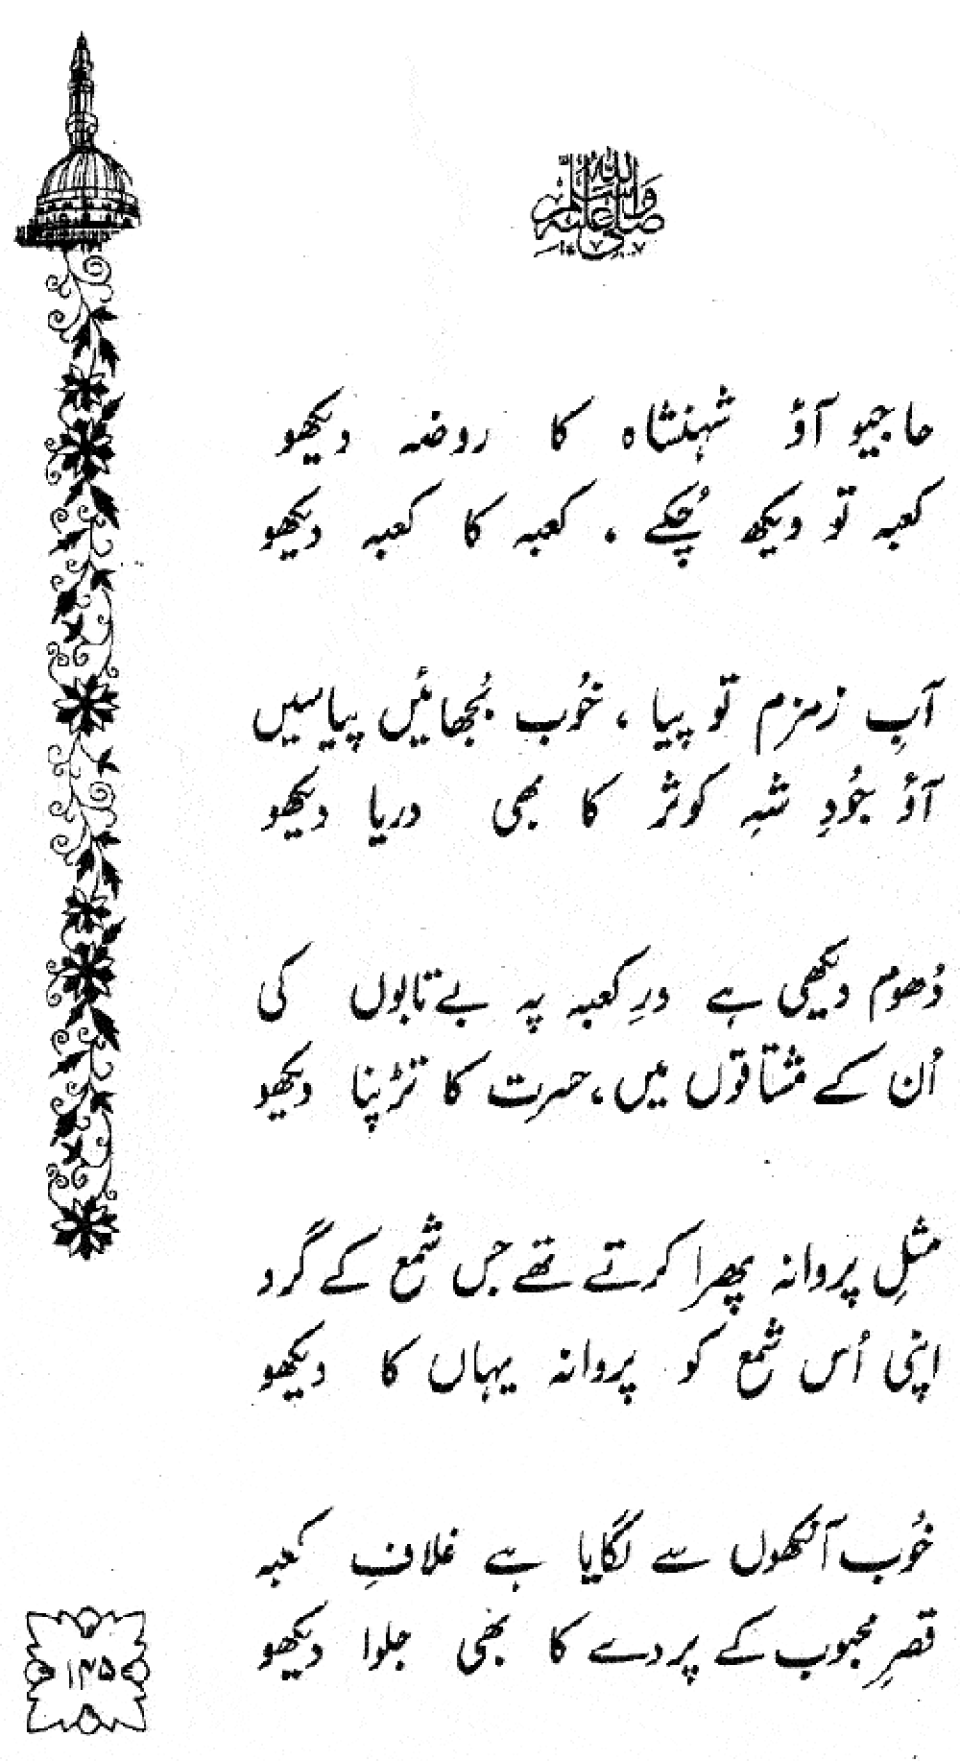 صلی اللہ علیہ وسلم
حاجیو آؤ شہنشاہ کا روضہ دیکھو
کعبہ تو دیکھ چُکے ، کعبہ کا کعبہ دیکھو
آبِ زمزم تو پیا ، خُوب بُجھائیں پیاسیں
آؤ جُودِ شہِ کوثر کا بھی دریا دیکھو
دُھوم دیکھی ہے درِ کعبہ پہ بے تابوں کی
اُن کے مشتاقوں میں ، حسرت کا تڑپنا دیکھو
مثلِ پروانہ پھرا کرتے تھے جس شمع کے گرد
اپنی اُس شمع کو پروانہ یہاں کا دیکھو
خُوب آنکھوں سے لگایا ہے غلافِ کعبہ
قصرِ محبوب کے پردے کا بھی جلوا دیکھو
۱۴۵